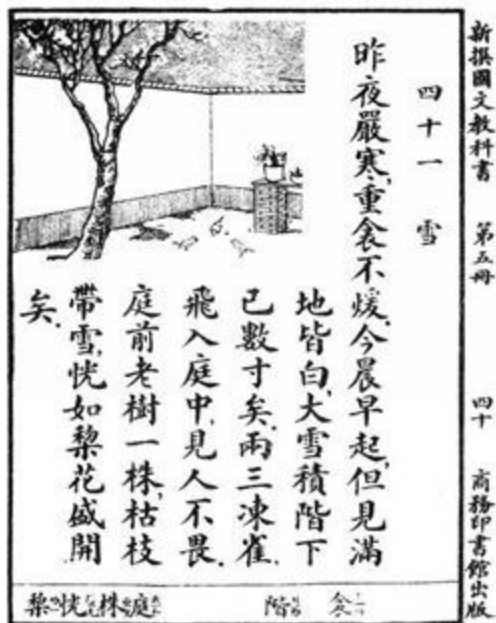 新撰國文教科書 第五冊 四十 商務印書館出版
四十一 雪
昨夜嚴寒,重衾不煖.今晨早起,但見滿
地皆白,大雪積階下
已數寸矣.兩三凍雀.
飛入庭中,見人不畏.
庭前老樹一株,枯枝
帶雪,恍如棃花盛開
矣.
衾 階 庭 株 恍 棃